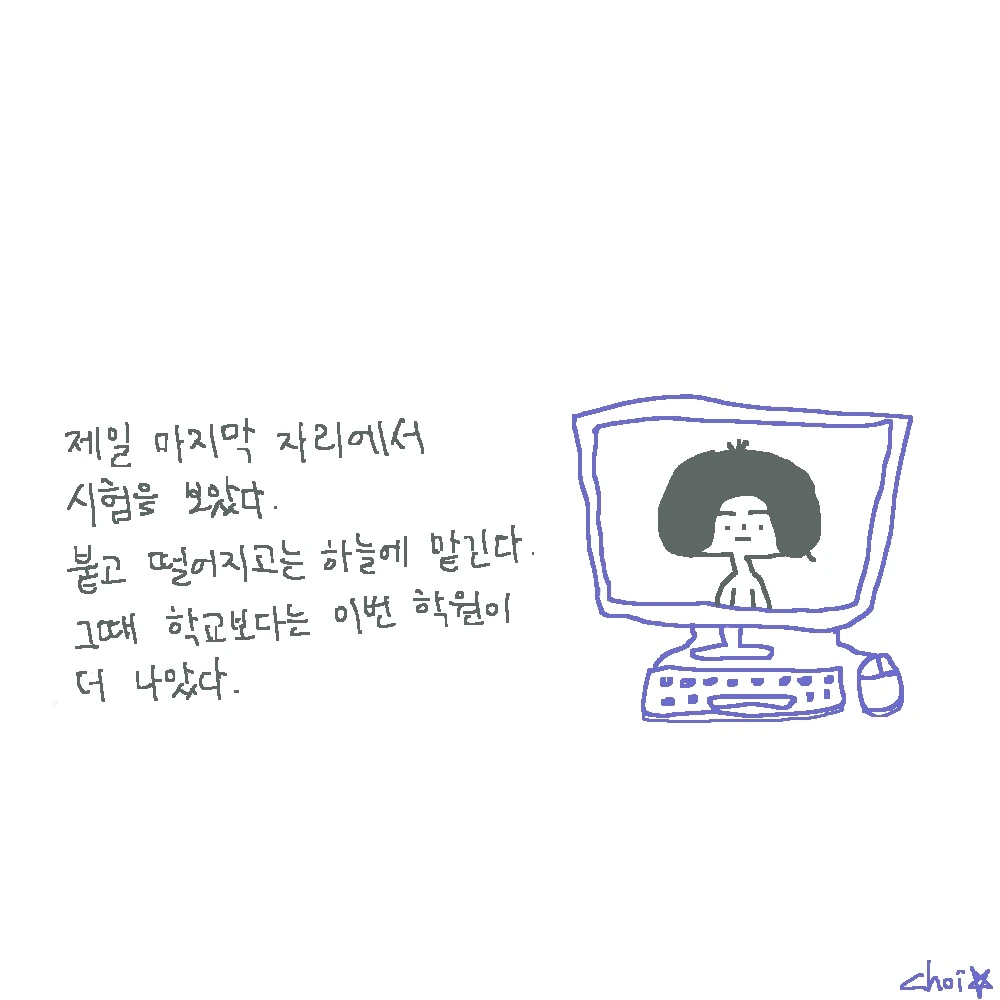 제일 마지막 자리에서
시험을 보았다.
붙고 떨어지고는 하늘에 맡긴다.
그때 학교보다는 이번 학원이
더 나았다.
choi